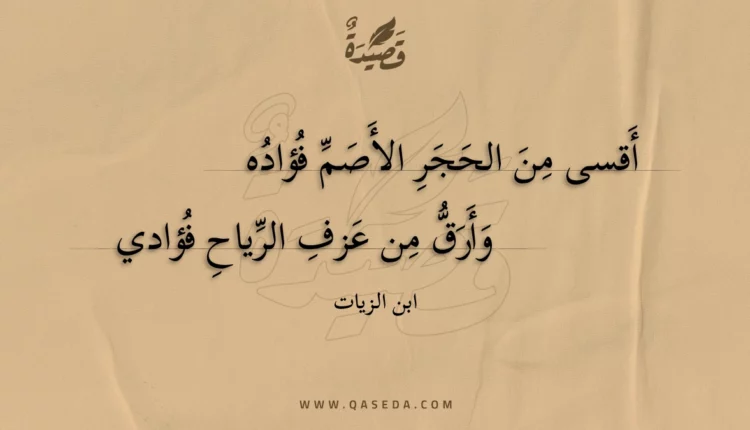 قَصِيْدَةٌ
أَقسى مِنَ الحَجَرِ الأَصَمِّ فُؤادُه
وَأَرَقُّ مِن عَزفِ الرِّياحِ فُؤادي
ابن الزيات
WWW.QASEDA.COM